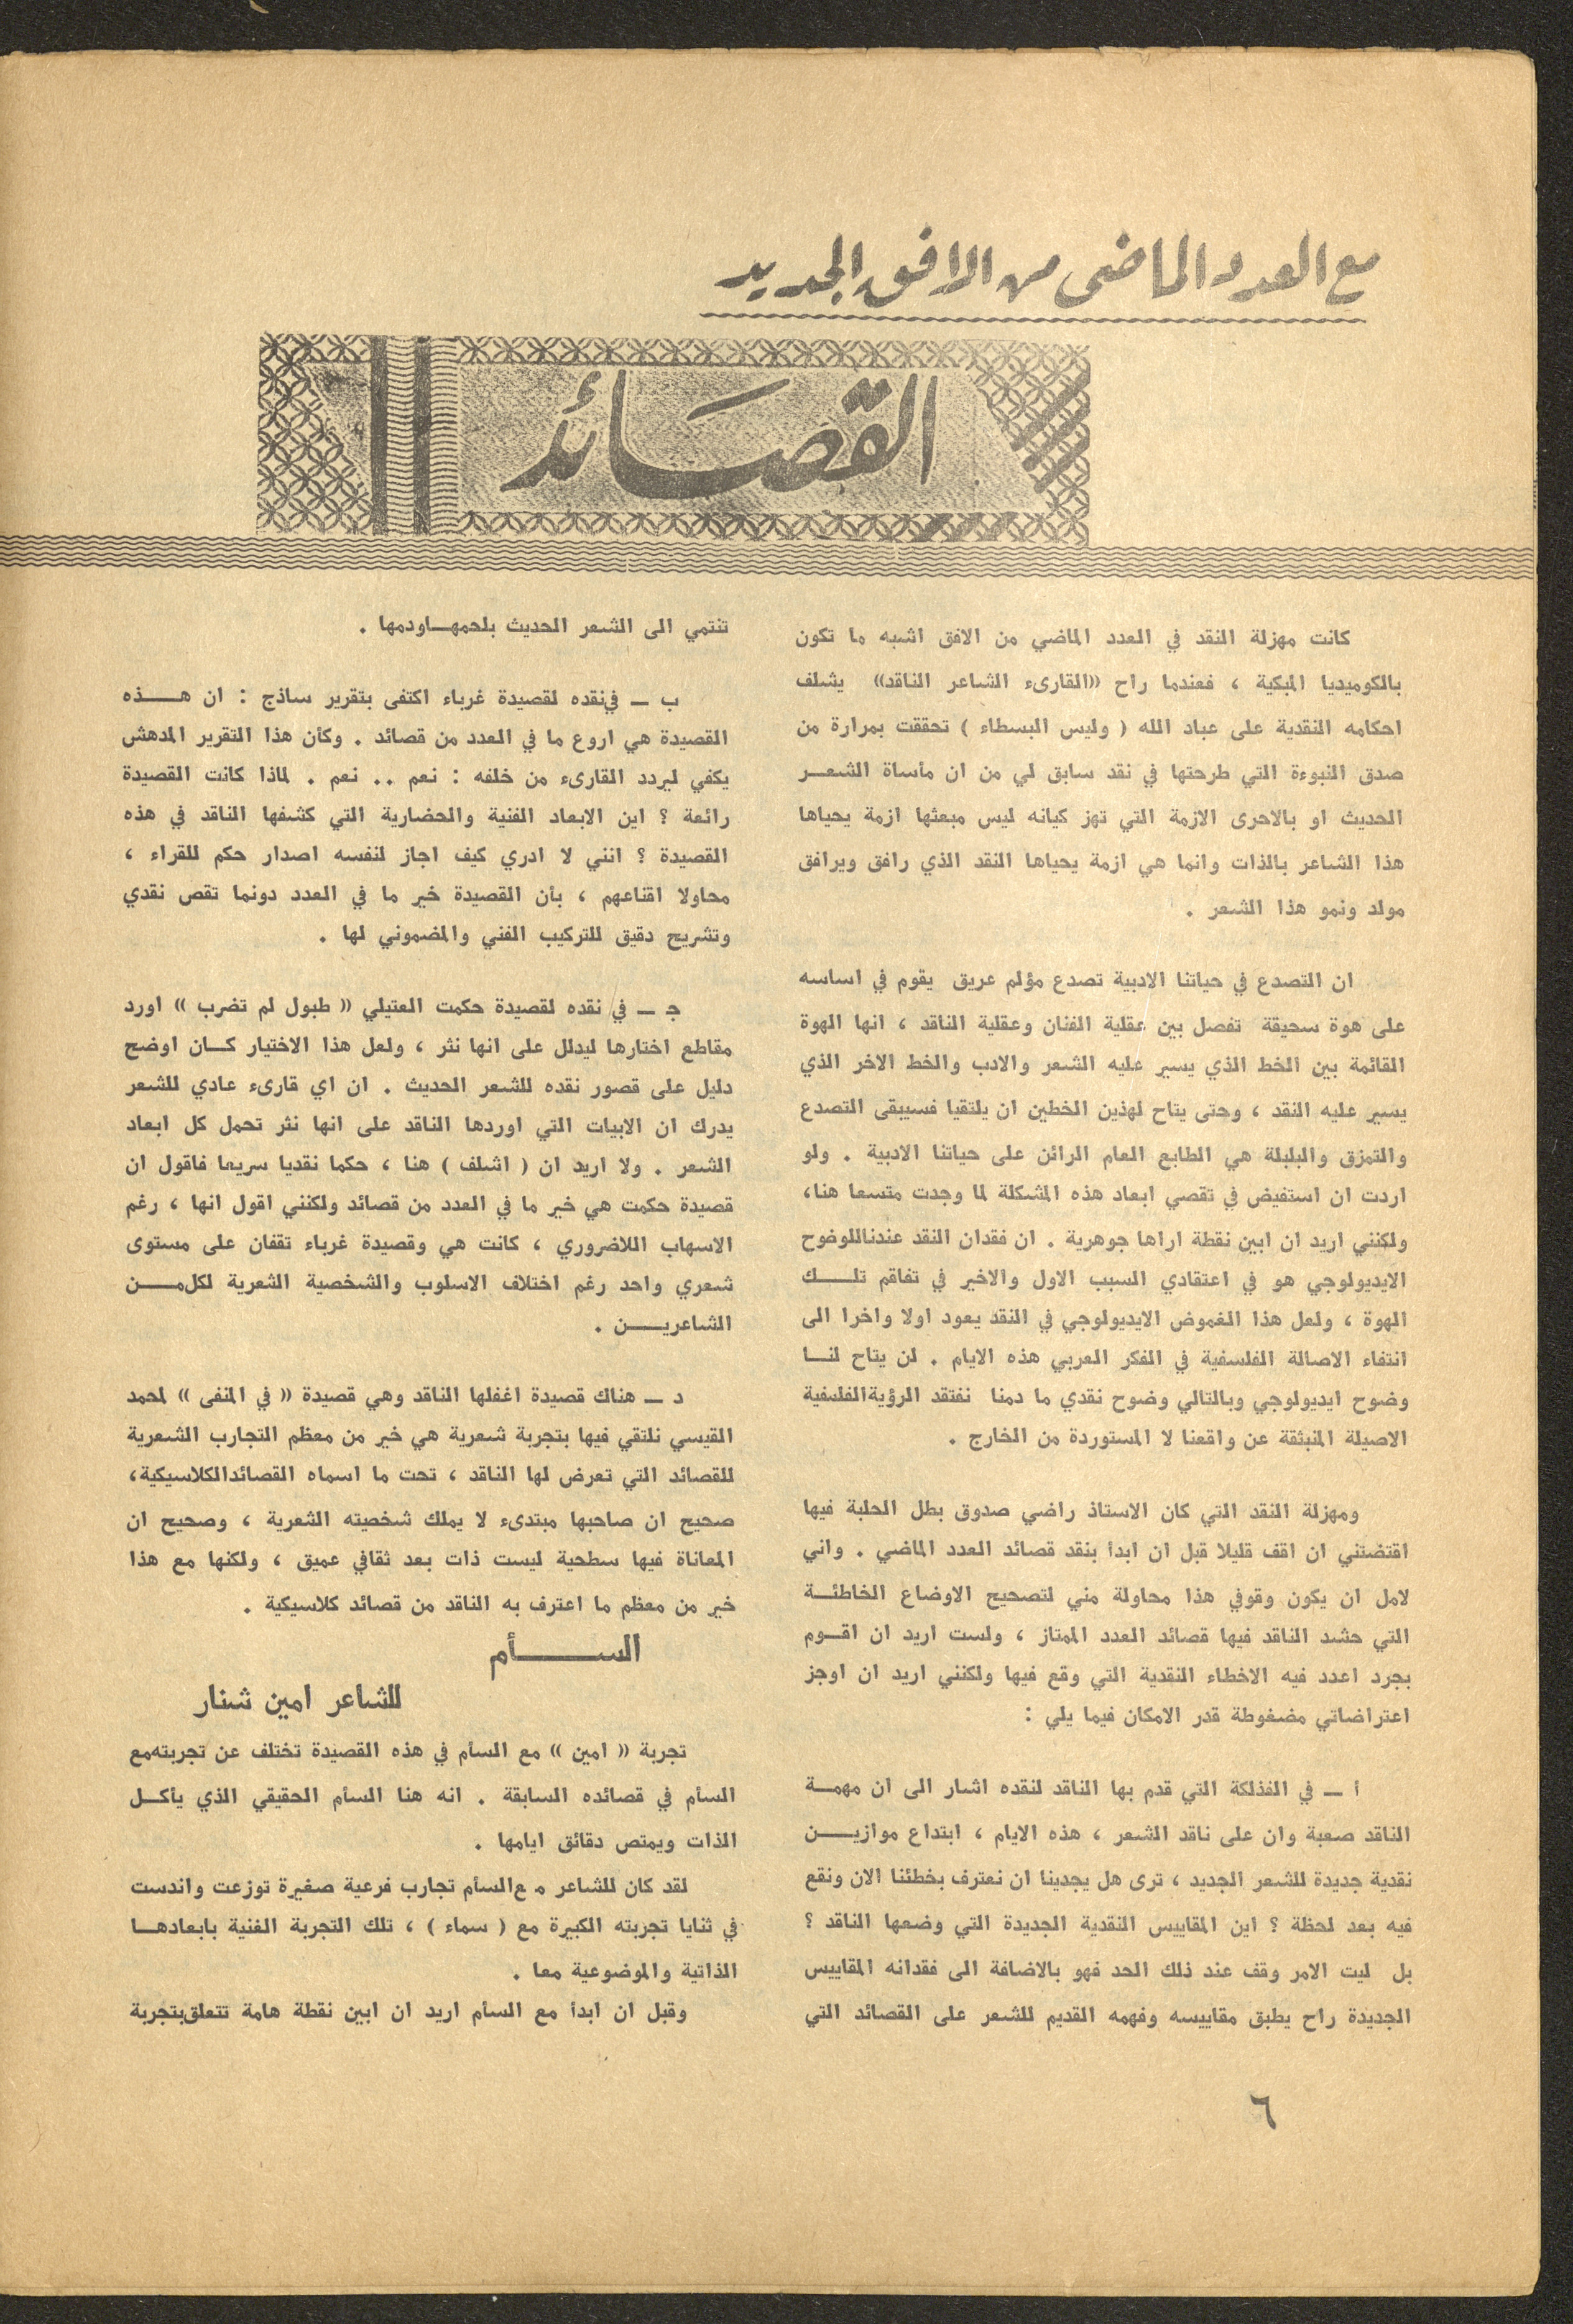 مع العدد الماضي من الافق الجديد
القصائد
كانت مهزلة النقد في العدد الماضي من الافق اشبه ما تكون
بالكوميديا المبكية ، فعندما راح «القارىء الشاعر الناقد» يشلف
احكامه النقدية على عباد الله ( وليس البسطاء ) تحققت بمرارة من
صدق النبوءة التي طرحتها في نقد سابق لي من ان مأساة الشعـــر
الحديث او بالاحرى الازمة التي تهز كيانه ليس مبعثها ازمة يحياها
هذا الشاعر بالذات وانما هي ازمة يحياها النقد الذي رافق ويرافق
مولد ونمو هذا الشعر .
ان التصدع في حياتنا الادبية تصدع مؤلم عريق يقوم في اساسه
على هوة سحيقة تفصل بين عقلية الفنان وعقلية الناقد ، انها الهوة
القائمة بين الخط الذي يسير عليه الشعر والادب والخط الاخر الذي
يسير عليه النقد ، وحتى يتاح لهذين الخطين ان يلتقيا فسيبقى التصدع
والتمزق والبلبلة هي الطابع العام الرائن على حياتنا الادبية . ولو
اردت ان استفيض في تقصي ابعاد هذه المشكلة لما وجدت متسعا هنا،
ولكنني اريد ان ابين نقطة اراها جوهرية . ان فقدان النقد عندناللوضوح
الايديولوجي هو في اعتقادي السبب الاول والاخير في تفاقم تلـــك
الهوة ، ولعل هذا الغموض الايديولوجي في النقد يعود اولا واخرا الى
انتفاء الاصالة الفلسفية في الفكر العربي هذه الايام . لن يتاح لنـــا
وضوح ايديولوجي وبالتالي وضوح نقدي ما دمنا نفتقد الرؤيةالفلسفية
الاصيلة المنبثقة عن واقعنا لا المستوردة من الخارج .
ومهزلة النقد التي كان الاستاذ راضي صدوق بطل الحلبة فيها
اقتضتني ان اقف قليلا قبل ان ابدأ بنقد قصائد العدد الماضي . واني
لامل ان يكون وقوفي هذا محاولة مني لتصحيح الاوضاع الخاطئـــة
التي حشد الناقد فيها قصائد العدد الممتاز ، ولست اريد ان اقـوم
بجرد اعدد فيه الاخطاء النقدية التي وقع فيها ولكنني اريد ان اوجز
اعتراضاتي مضغوطة قدر الامكان فيما يلي :
أ ـ في الفذلكة التي قدم بها الناقد لنقده اشار الى ان مهمـــة
الناقد صعبة وان على ناقد الشعر ، هذه الايام ، ابتداع موازيـــن
نقدية جديدة للشعر الجديد ، ترى هل يجدينا ان نعترف بخطئنا الان ونقع
فيه بعد لحظة ؟ اين المقاييس النقدية الجديدة التي وضعها الناقد ؟
بل ليت الامر وقف عند ذلك الحد فهو بالاضافة الى فقدانه المقاييس
الجديدة راح يطبق مقاييسه وفهمه القديم للشعر على القصائد التي
تنتمي الى الشعر الحديث بلحمهـــاودمها .
ب ـ فينقده لقصيدة غرباء اكتفى بتقرير ساذج : ان هـــذه
القصيدة هي اروع ما في العدد من قصائد . وكأن هذا التقرير المدهش
يكفي ليردد القارىء من خلفه : نعم .. نعم . لماذا كانت القصيدة
رائعة ؟ اين الابعاد الفنية والحضارية التي كشفها الناقد في هذه
القصيدة ؟ انني لا ادري كيف اجاز لنفسه اصدار حكم للقراء ،
محاولا اقناعهم ، بأن القصيدة خير ما في العدد دونما تقص نقدي
وتشريح دقيق للتركيب الفني والمضموني لها .
جـ ـ في نقده لقصيدة حكمت العتيلي « طبول لم تضرب » اورد
مقاطع اختارها ليدلل على انها نثر ، ولعل هذا الاختيار كـان اوضح
دليل على قصور نقده للشعر الحديث . ان اي قارىء عادي للشعر
يدرك ان الابيات التي اوردها الناقد على انها نثر تحمل كل ابعاد
الشعر . ولا اريد ان ( اشلف ) هنا ، حكما نقديا سريعا فاقول ان
قصيدة حكمت هي خير ما في العدد من قصائد ولكنني اقول انها ، رغم
الاسهاب اللاضروري ، كانت هي وقصيدة غرباء تقفان على مستوى
شعري واحد رغم اختلاف الاسلوب والشخصية الشعرية لكلمـــن
الشاعريـــن .
د ـ هناك قصيدة اغفلها الناقد وهي قصيدة « في المنفى » لمحمد
القيسي نلتقي فيها بتجربة شعرية هي خير من معظم التجارب الشعرية
للقصائد التي تعرض لها الناقد ، تحت ما اسماه القصائدالكلاسيكية،
صحيح ان صاحبها مبتدىء لا يملك شخصيته الشعرية ، وصحيح ان
المعاناة فيها سطحية ليست ذات بعد ثقافي عميق ، ولكنها مع هذا
خير من معظم ما اعترف به الناقد من قصائد كلاسيكية .
الســـــأم
للشاعر امين شنار
تجربة « امين » مع السأم في هذه القصيدة تختلف عن تجربتهمع
السأم في قصائده السابقة . انه هنا السأم الحقيقي الذي يأكـــل
الذات ويمتص دقائق ايامها .
لقد كان للشاعر م عالسأم تجارب فرعية صغيرة توزعت واندست
في ثنايا تجربته الكبيرة مع ( سماء ) ، تلك التجربة الفنية بابعادهـــا
الذاتية والموضوعية معا .
وقبل ان ابدأ مع السأم اريد ان ابين نقطة هامة تتعلقبتجربة
٦